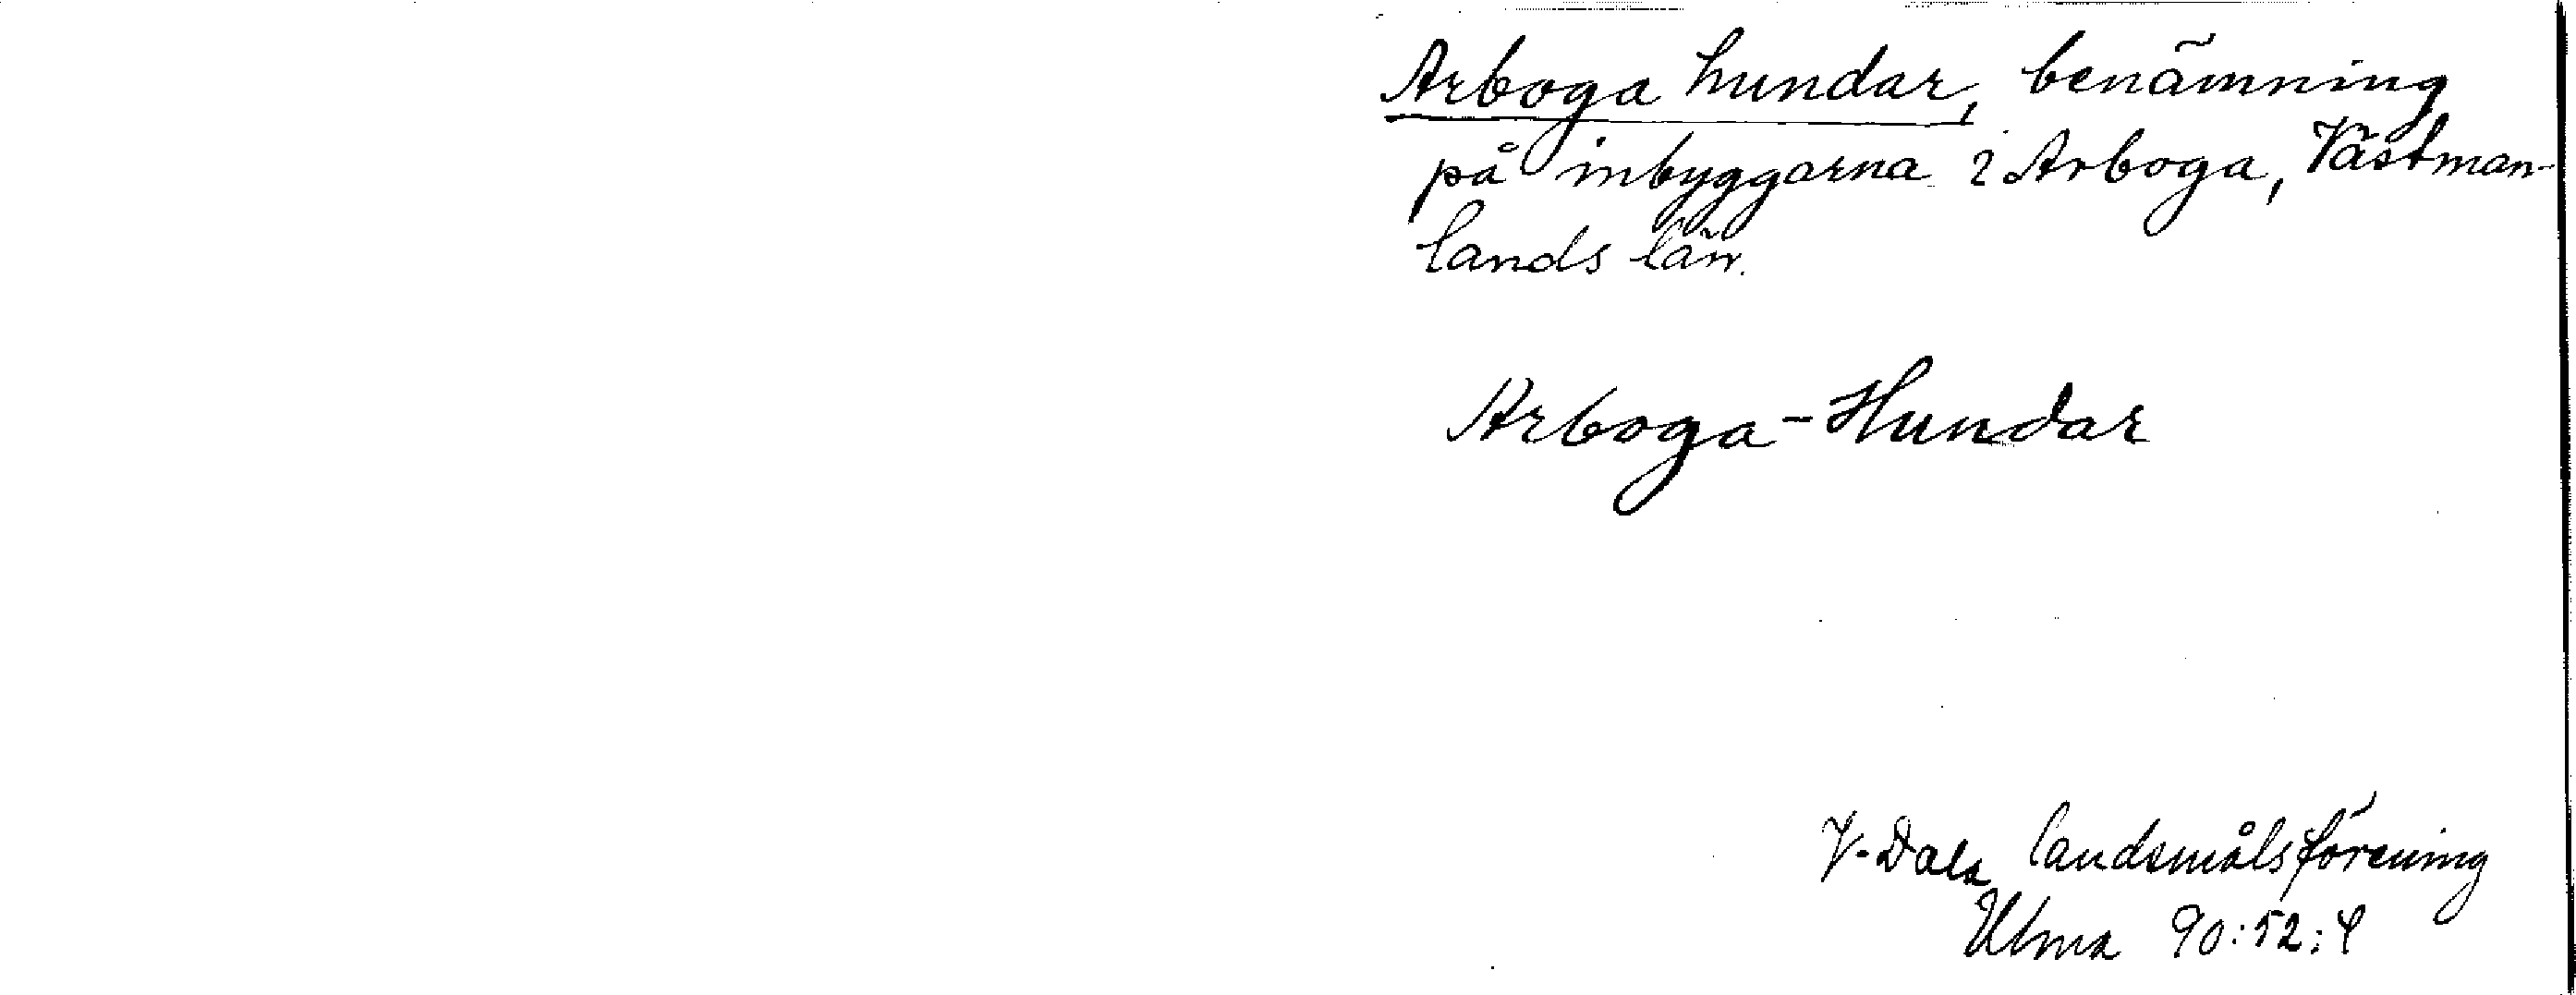 Arboga hundar, benämning
på inbyggarna i Arboga, Västman-
lands län.
Arboga-Hundar
V-Dala landsmålsförening
Ulma 90:52:4